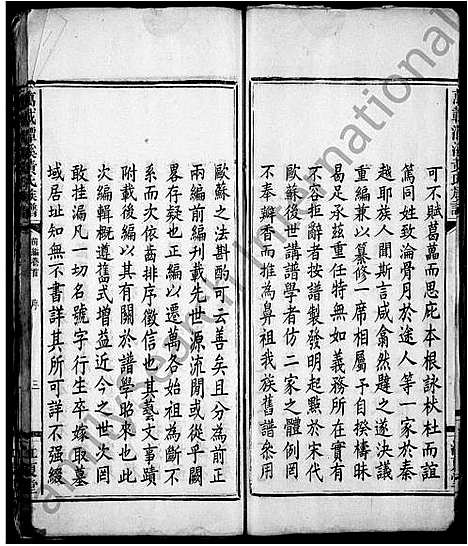 萬載潭溪黃氏族譜
可不賦葛藟而思庇本根詠杕杜而誼
篤同姓致淪骨月於途人等一家於秦
越耶族人聞斯言咸翕然韙之遂決議
重編兼以纂修一席相屬予自揆檮昧
曷足承茲重任特無如義務所在實有
不容拒辭者按譜製發明起點於宋代
歐蘇後世講譜學者仿二家之體例罔
不奉瓣香而推為鼻祖我族舊譜參用
歐蘇之法斟酌可云善矣且分為前正
兩編前編刊載先世源流間或從乎闕
畧存疑也正編以還萬各始祖為斷不
系而次依齒排序徵信也其藝文事蹟
附載後編以其有關於譜學昭來也此
次編輯概遵舊式增益近今之世次罔
敢挂漏凡一切名號字行生卒嫁取墓
域居址知無不書詳其所可詳不強綴
萬載潭溪黃氏族譜
前編卷首
序
三
江夏堂
Family Search International